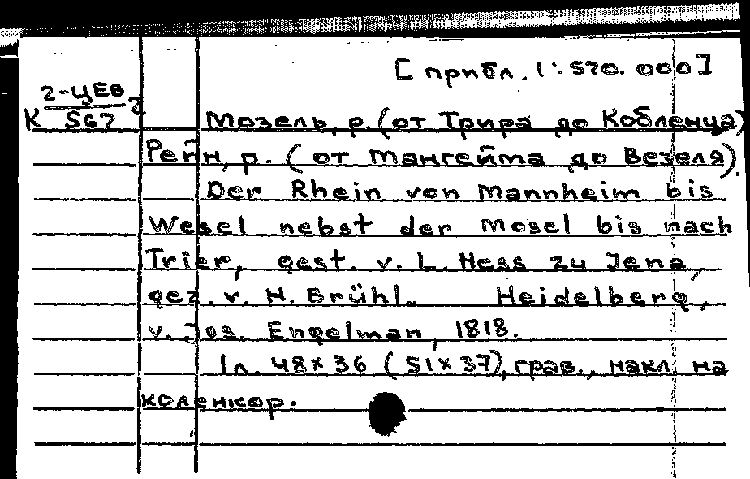 [ прибл. 1:570.000]
К 2-ЦЕВ/567 2
Мозель, р. (от Трира до Кобленца)
Рейн, р. (от Мангейма до Везеля).
Der Rhein von Mannheim bis
Wesel nebst der Mosel bis nach
Trier, gest. v. L. Hess zu Jena,
gez. v. H. Brühl. Heidelberg,
v. Jos. Engelman, 1818.
1 л. 48×36 (51×37), грав., накл. на
коленкор.